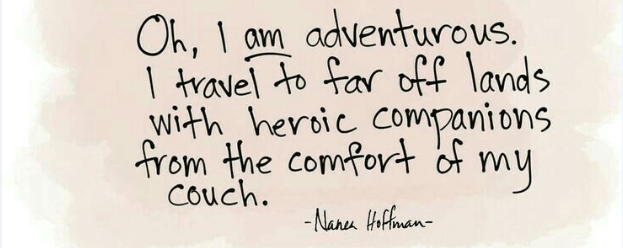 Oh, I am adventurous.
I travel to far off lands
with heroic companions
from the comfort of my
couch.
-Nanea Hoffman-